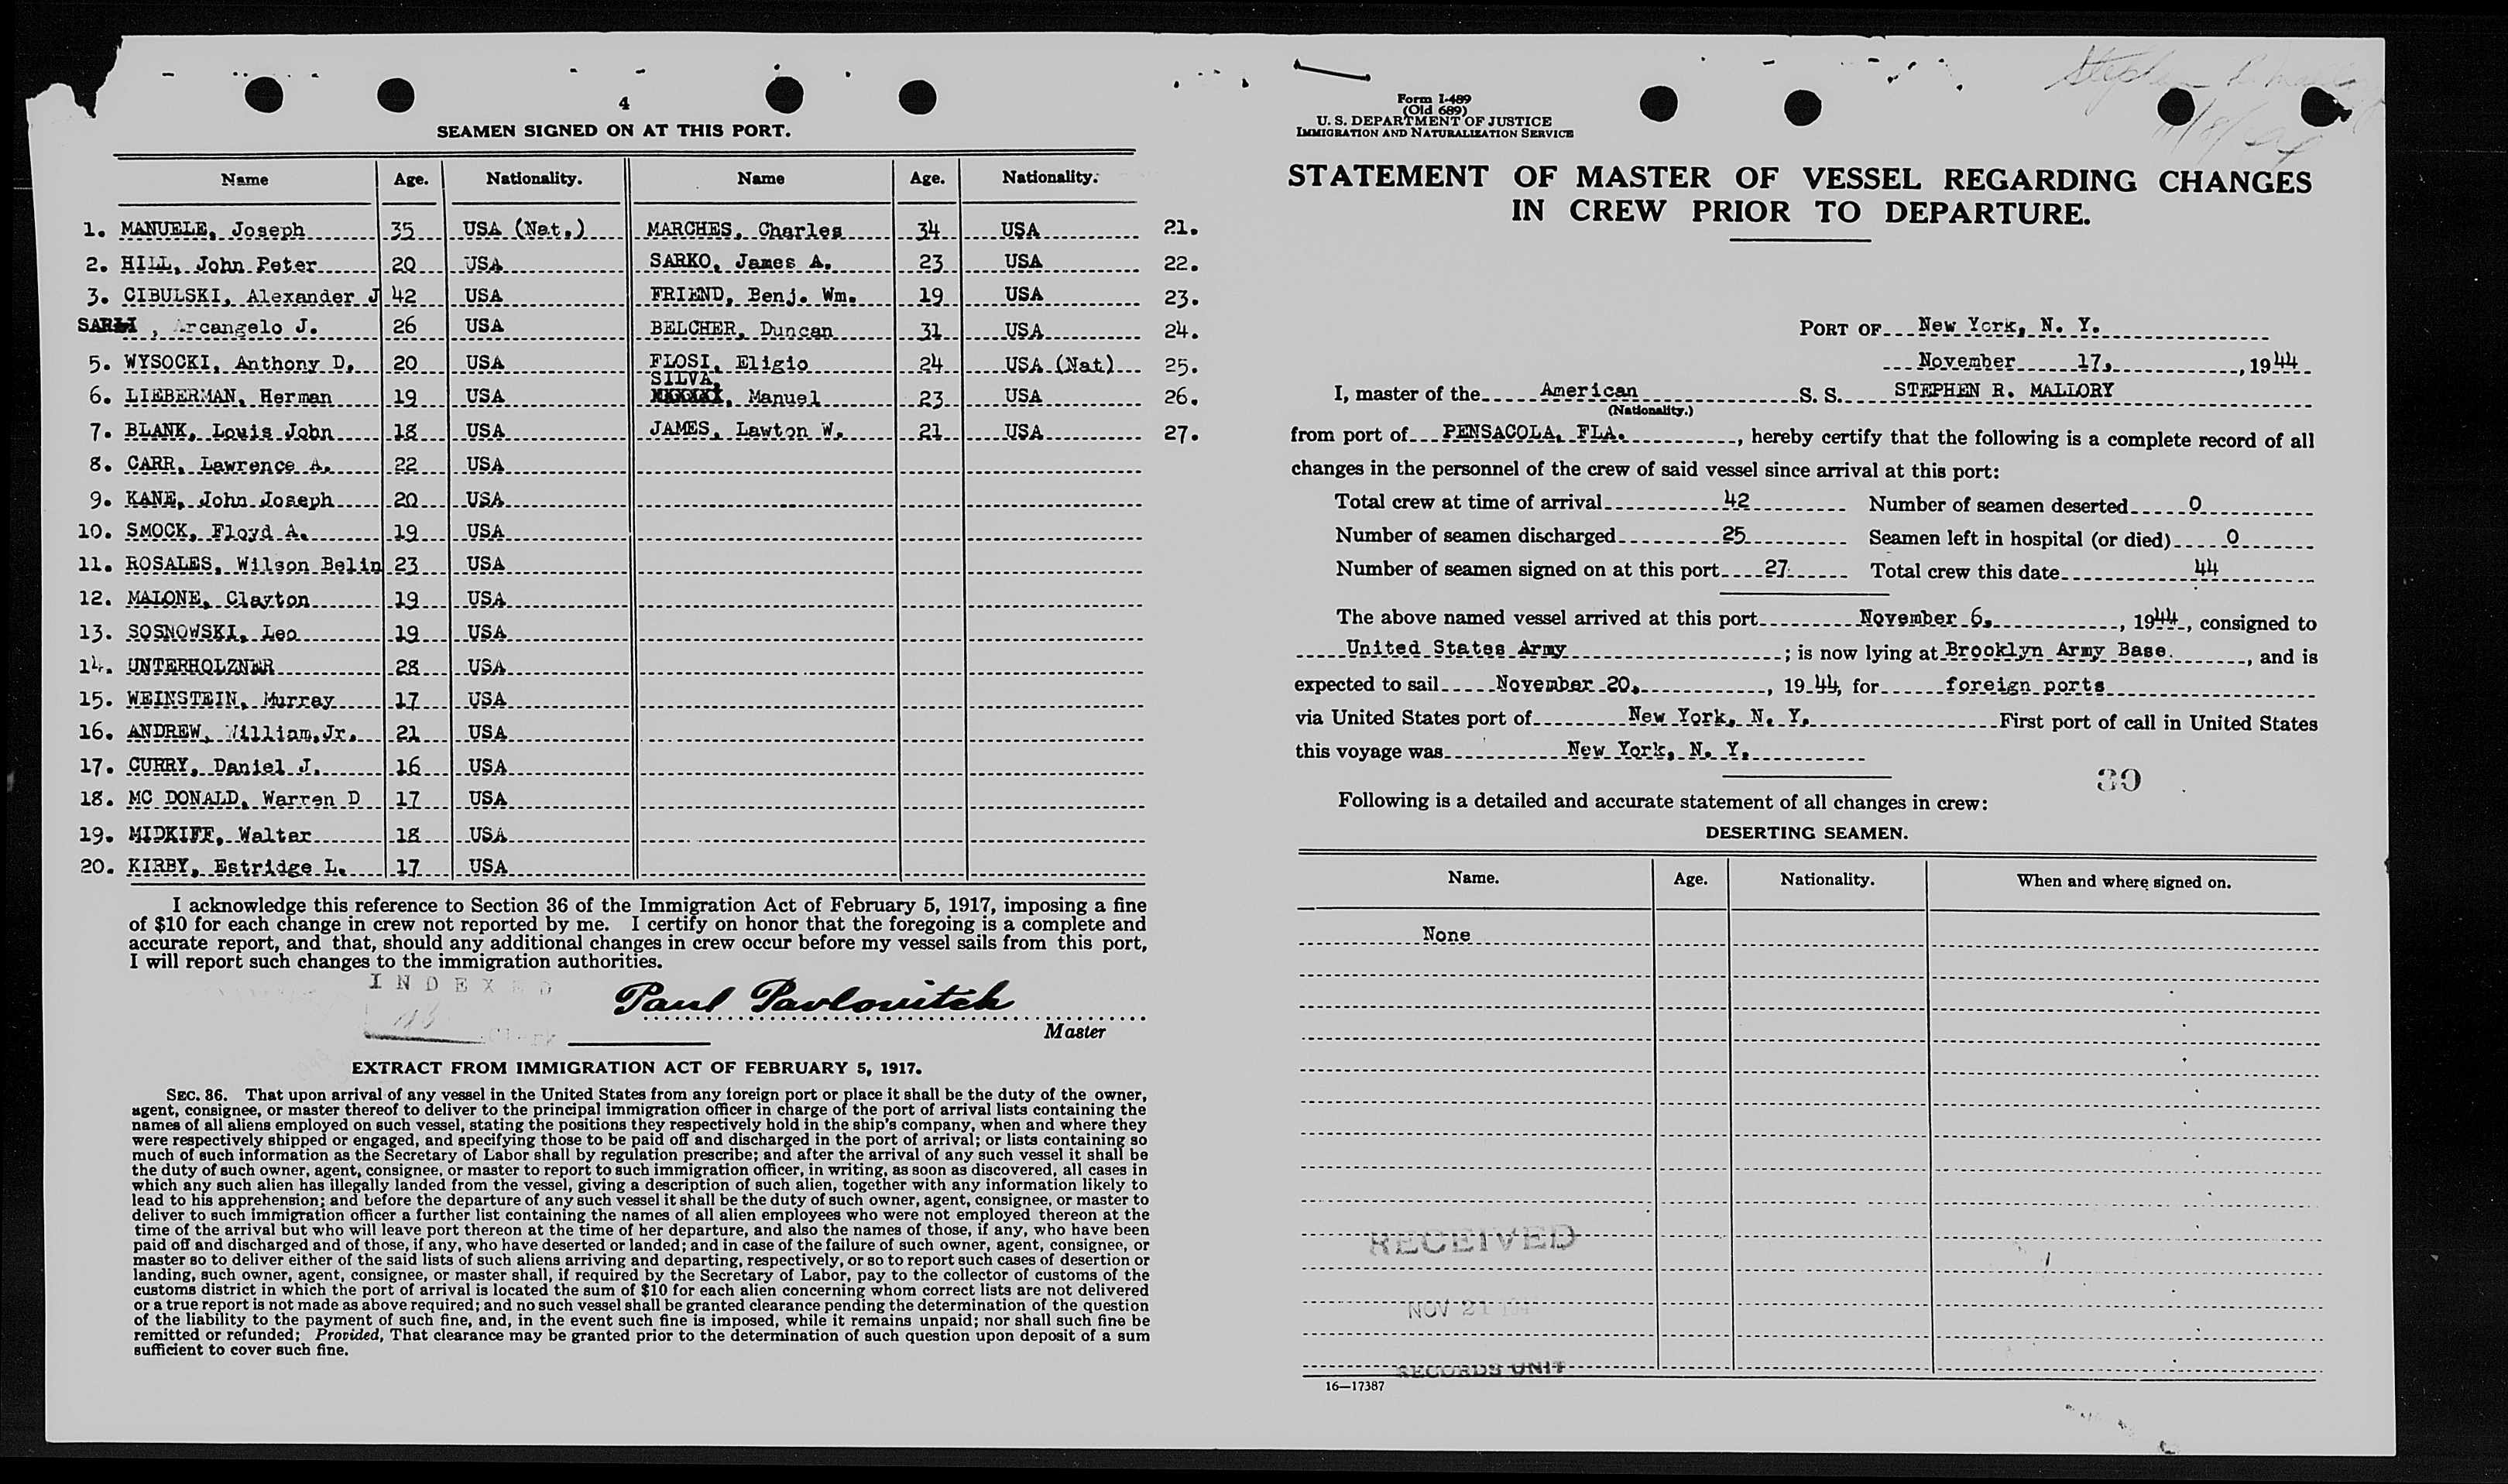 4
SEAMEN SIGNED ON AT THIS PORT.
Name Age. Nationality. Name Age. Nationality.
1. MANUELE, Joseph 35 USA (Nat.) MARCHES, Charles 34 USA 21.
2. HILL, John Peter 20 USA SARKO, James A. 23 USA 22.
3. CIBULSKI, Alexander J 42 USA FRIEND, Benj. Wm. 19 USA 23.
, Arcangelo J. 26 USA BELCHER, Duncan 31 USA 24.
5. WYSOCKI, Anthony D. 20 USA FLOSI, Eligio 24 USA (Nat) 25.
SILVA,
6. LIEBERMAN, Herman 19 USA , Manuel 23 USA 26.
7. BLANK, Louis John 18 USA JAMES, Lawton W. 21 USA 27.
8. CARR, Lawrence A. 22 USA
9. KANE, John Joseph 20 USA
10. SMOCK, Floyd A. 19 USA
11. ROSALES, Wilson Belin 23 USA
12. MALONE, Clayton 19 USA
13. SOSNOWSKI, Leo 19 USA
14. UNTERHOLZNER 28 USA
15. WEINSTEIN, Murray 17 USA
16. ANDREW, William, Jr. 21 USA
17. CURRY, Daniel J. 16 USA
18. MC DONALD, Warren D 17 USA
19. MIDKIFF, Walter 18 USA
20. KIRBY, Estridge L. 17 USA
I acknowledge this reference to Section 36 of the Immigration Act of February 5, 1917, imposing a fine
of $10 for each change in crew not reported by me. I certify on honor that the foregoing is a complete and
accurate report, and that, should any additional changes in crew occur before my vessel sails from this port,
I will report such changes to the immigration authorities.
INDEXED
Paul Pavlovitch
Clerk
Master
EXTRACT FROM IMMIGRATION ACT OF FEBRUARY 5, 1917.
SEC. 36. That upon arrival of any vessel in the United States from any foreign port or place it shall be the duty of the owner,
agent, consignee, or master thereof to deliver to the principal immigration officer in charge of the port of arrival lists containing the
names of all aliens employed on such vessel, stating the positions they respectively hold in the ship's company, when and where they
were respectively shipped or engaged, and specifying those to be paid off and discharged in the port of arrival; or lists containing so
much of such information as the Secretary of Labor shall by regulation prescribe; and after the arrival of any such vessel it shall be
the duty of such owner, agent, consignee, or master to report to such immigration officer, in writing, as soon as discovered, all cases in
which any such alien has illegally landed from the vessel, giving a description of such alien, together with any information likely to
lead to his apprehension; and before the departure of any such vessel it shall be the duty of such owner, agent, consignee, or master to
deliver to such immigration officer a further list containing the names of all alien employees who were not employed thereon at the
time of the arrival but who will leave port thereon at the time of her departure, and also the names of those, if any, who have been
paid off and discharged and of those, if any, who have deserted or landed; and in case of the failure of such owner, agent, consignee, or
master so to deliver either of the said lists of such aliens arriving and departing, respectively, or so to report such cases of desertion or
landing, such owner, agent, consignee, or master shall, if required by the Secretary of Labor, pay to the collector of customs of the
customs district in which the port of arrival is located the sum of $10 for each alien concerning whom correct lists are not delivered
or a true report is not made as above required; and no such vessel shall be granted clearance pending the determination of the question
of the liability to the payment of such fine, and, in the event such fine is imposed, while it remains unpaid; nor shall such fine be
remitted or refunded; Provided, That clearance may be granted prior to the determination of such question upon deposit of a sum
sufficient to cover such fine.
Stephen R. Mallory
Form I-489
(Old 689)
U. S. DEPARTMENT OF JUSTICE
IMMIGRATION AND NATURALIZATION SERVICE
STATEMENT OF MASTER OF VESSEL REGARDING CHANGES
IN CREW PRIOR TO DEPARTURE.
PORT OF New York, N. Y.
November 17, 1944
I, master of the American S. S. STEPHEN R. MALLORY
(Nationality.)
from port of PENSACOLA, FLA., hereby certify that the following is a complete record of all
changes in the personnel of the crew of said vessel since arrival at this port:
Total crew at time of arrival 42 Number of seamen deserted 0
Number of seamen discharged 25 Seamen left in hospital (or died) 0
Number of seamen signed on at this port 27 Total crew this date 44
The above named vessel arrived at this port November 6, 1944, consigned to
United States Army ; is now lying at Brooklyn Army Base , and is
expected to sail November 20, 1944, for foreign ports
via United States port of New York, N. Y. First port of call in United States
this voyage was New York, N. Y.
39
Following is a detailed and accurate statement of all changes in crew:
DESERTING SEAMEN.
Name. Age. Nationality. When and where signed on.
None
RECEIVED
NOV 21
RECORDS UNIT
16—17387